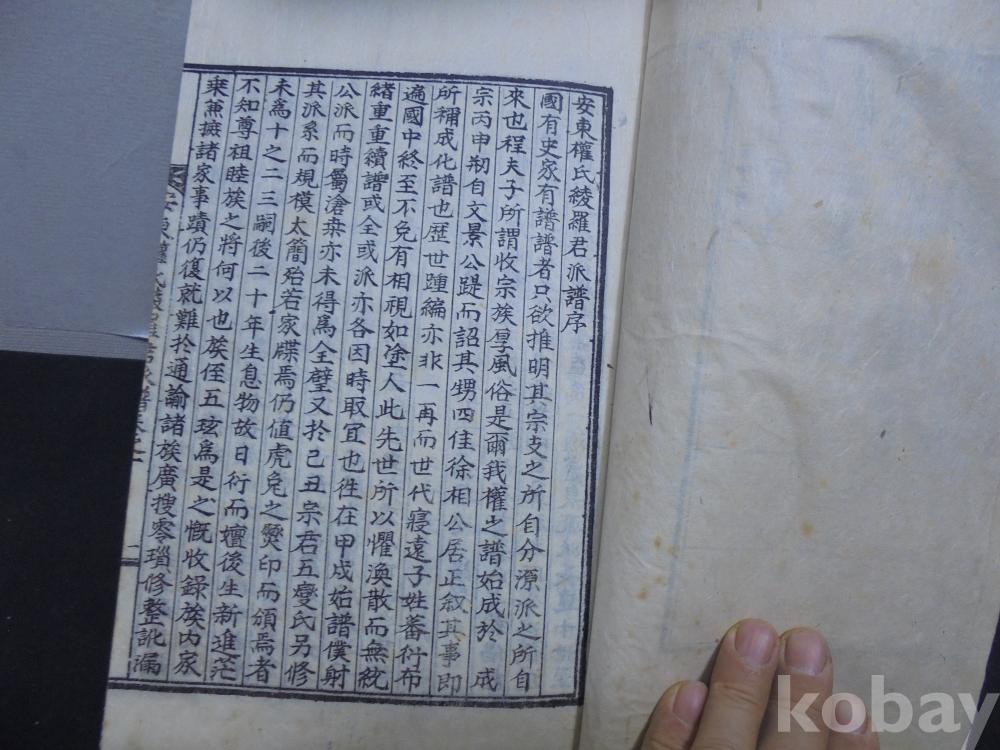 安東權氏綾羅君派譜序
國有史家有譜譜者只欲推明其宗支之所自分源派之所自
來也程夫子所謂收宗族厚風俗是爾我權之譜始成於 成
宗丙申刱自文景公踶而詔其甥四佳徐相公居正叙其事即
所稱成化譜也歷世踵編亦非一再而世代寢遠子姓蕃衍布
遍國中終至不免有相視如塗人此先世所以懼渙散而無統
緖重重續譜或全或派亦各因時取宜也徃在甲戌始譜僕射
公派而時屬滄桒亦未得爲全璧又於己丑宗君五燮氏另修
其派系而規模太簡殆若家牒焉仍值虎兔之爕印而頒焉者
未爲十之二三嗣後二十年生息物故日衍而嬗後生新進茫
不知尊祖睦族之將何以也族侄五玹爲是之慨收錄族内家
乗兼摭諸家事蹟仍復就難於通諭諸族廣搜零瑙修整訛漏
安東權氏綾羅君派譜卷之一
一
kobay